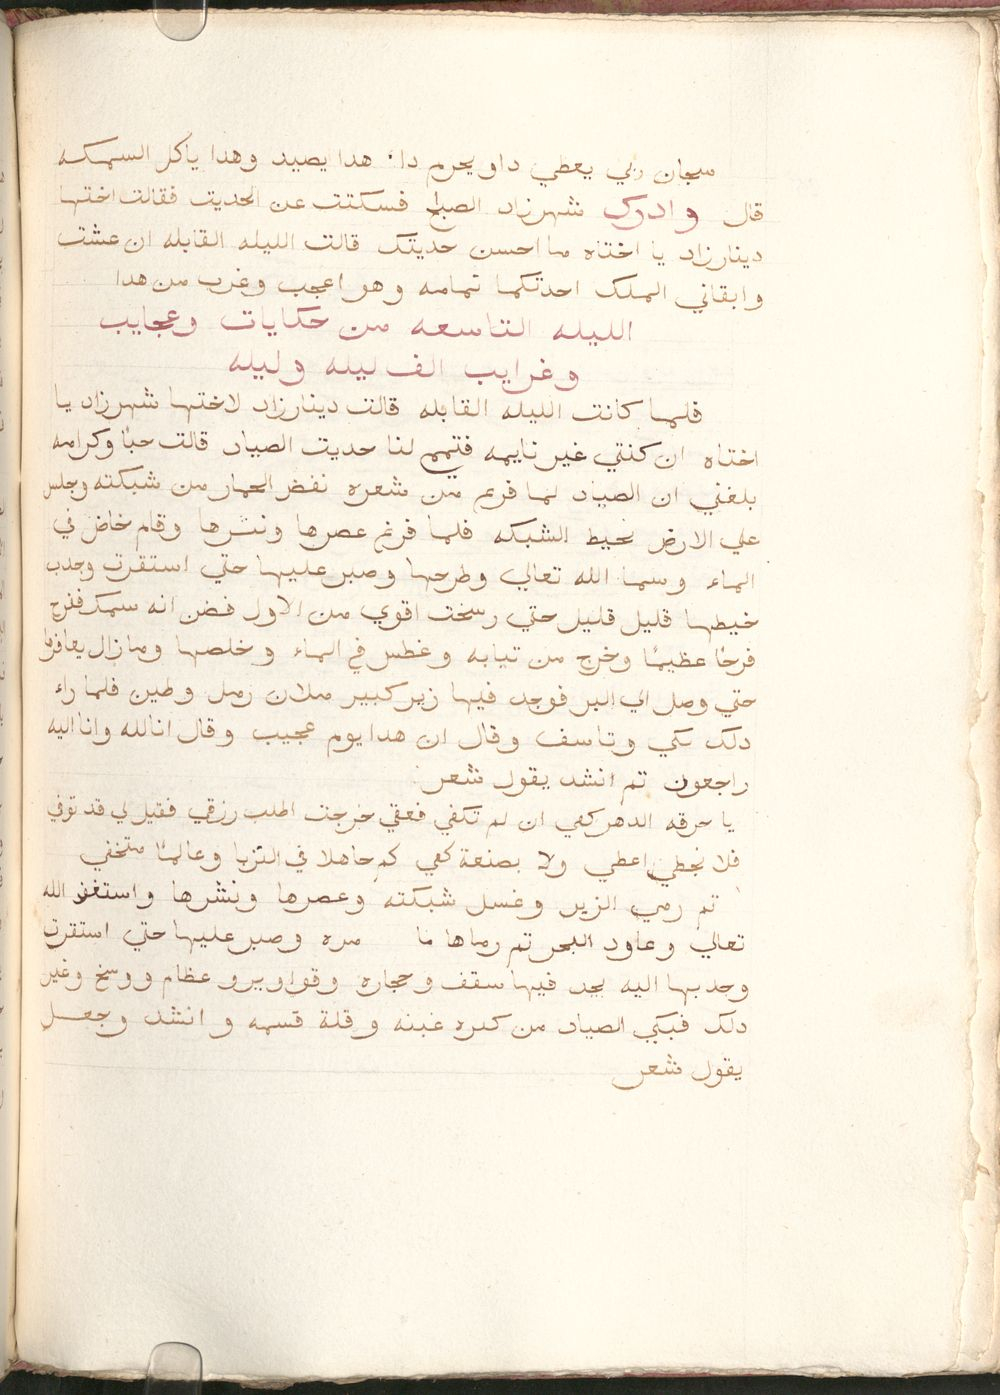 سبحان ربي يعطي دا ويحرم دا، هدا يصيد وهدا ياكل السمكه
قال وادرك شهرزاد الصباح فسكتت عن الحديت فقالت اختها
دينارزاد يا اختاه ما احسن حديتك قالت الليله القابله ان عشت
وابقاني الملك احدتكما تمامه وهو اعجب وغرب من هدا
الليله التاسعه من حكايات وعجايب
وغرايب الف ليله وليله
فلما كانت الليله القابله قالت دينارزاد لاختها شهرزاد يا
اختاه ان كنتي غير نايمه فتممي لنا حديت الصياد قالت حبا وكرامه
بلغني ان الصياد لما فرغ من شعره نفض الحمار من شبكته وجلس
علي الارض يخيط الشبكه فلما فرغ عصرها ونشرها وقام خاض في
الماء وسما الله تعالي وطرحها وصبر عليها حتي استقرت وجدب
خيطها قليل قليل حتي رسخت اقوي من الاول فضن انه سمك ففرح
فرحا عظيما وخرج من تيابه وغطس في الماء وخلصها وما زال يعافرها
حتي وصل الي البر فوجد فيها زير كبير ملان رمل وطين فلما راء
دلك بكي وتاسف وقال ان هدا يوم عجيب وقال انا لله وانا اليه
راجعون تم انشد يقول شعر
يا حرقه الدهر كفي ان لم تكفي فعفي خرجت اطلب رزقي فقيل لي قد توفي
فلا بحظي اعطي ولا بصنعة كفي كم جاهلا في التريا وعالما متخفي
تم رمي الزير وغسل شبكته وعصرها ونشرها واستغفر الله
تعالي وعاود البحر تم رماها مره وصبر عليها حتي استقرت
وجدبها اليه يجد فيها سقف وحجاره وقواوير وعظام ووسخ وغير
دلك فبكي الصياد من كتره غبنه وقلة قسمه وانشد وجعل
يقول شعر